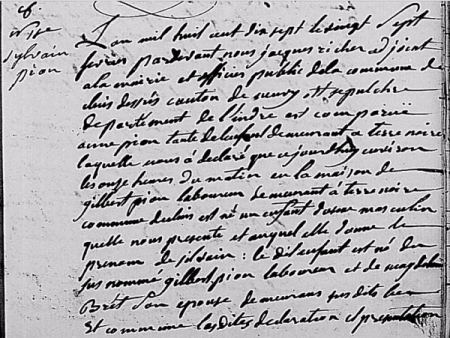 sylvain
pion
L'an mil huit cent dix sept le vingt sept
fevrier pardevant nous jacques richer adjoint
a la mairie et officier public de la commune de
cluis dessus canton de neuvy st sepulchre
departement de l'indre est comparüe
anne pion tante de l'enfant demeurant a terre noire
laquelle nous a déclaré que aujourd'huy environ
les onze heures du matin en la maison de
gilbert pion laboureur demeurant à terre noire
commune de cluis est né un enfant du sexe masculin
quelle nous presente et auquel elle donne le
prenom de silvain : le dit enfant est né du
sus nommé gilbert pion laboureur et de magdelaine
Bret son epouse demeurans susdits lieu
Et comme les dites declaration et presentation